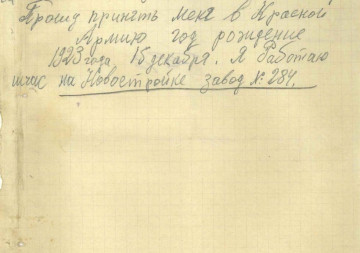 Прошу принять меня в Красной
Армию год рождение
1923 года, 15 декабря. Я работаю
на Новостройке завод № 284.